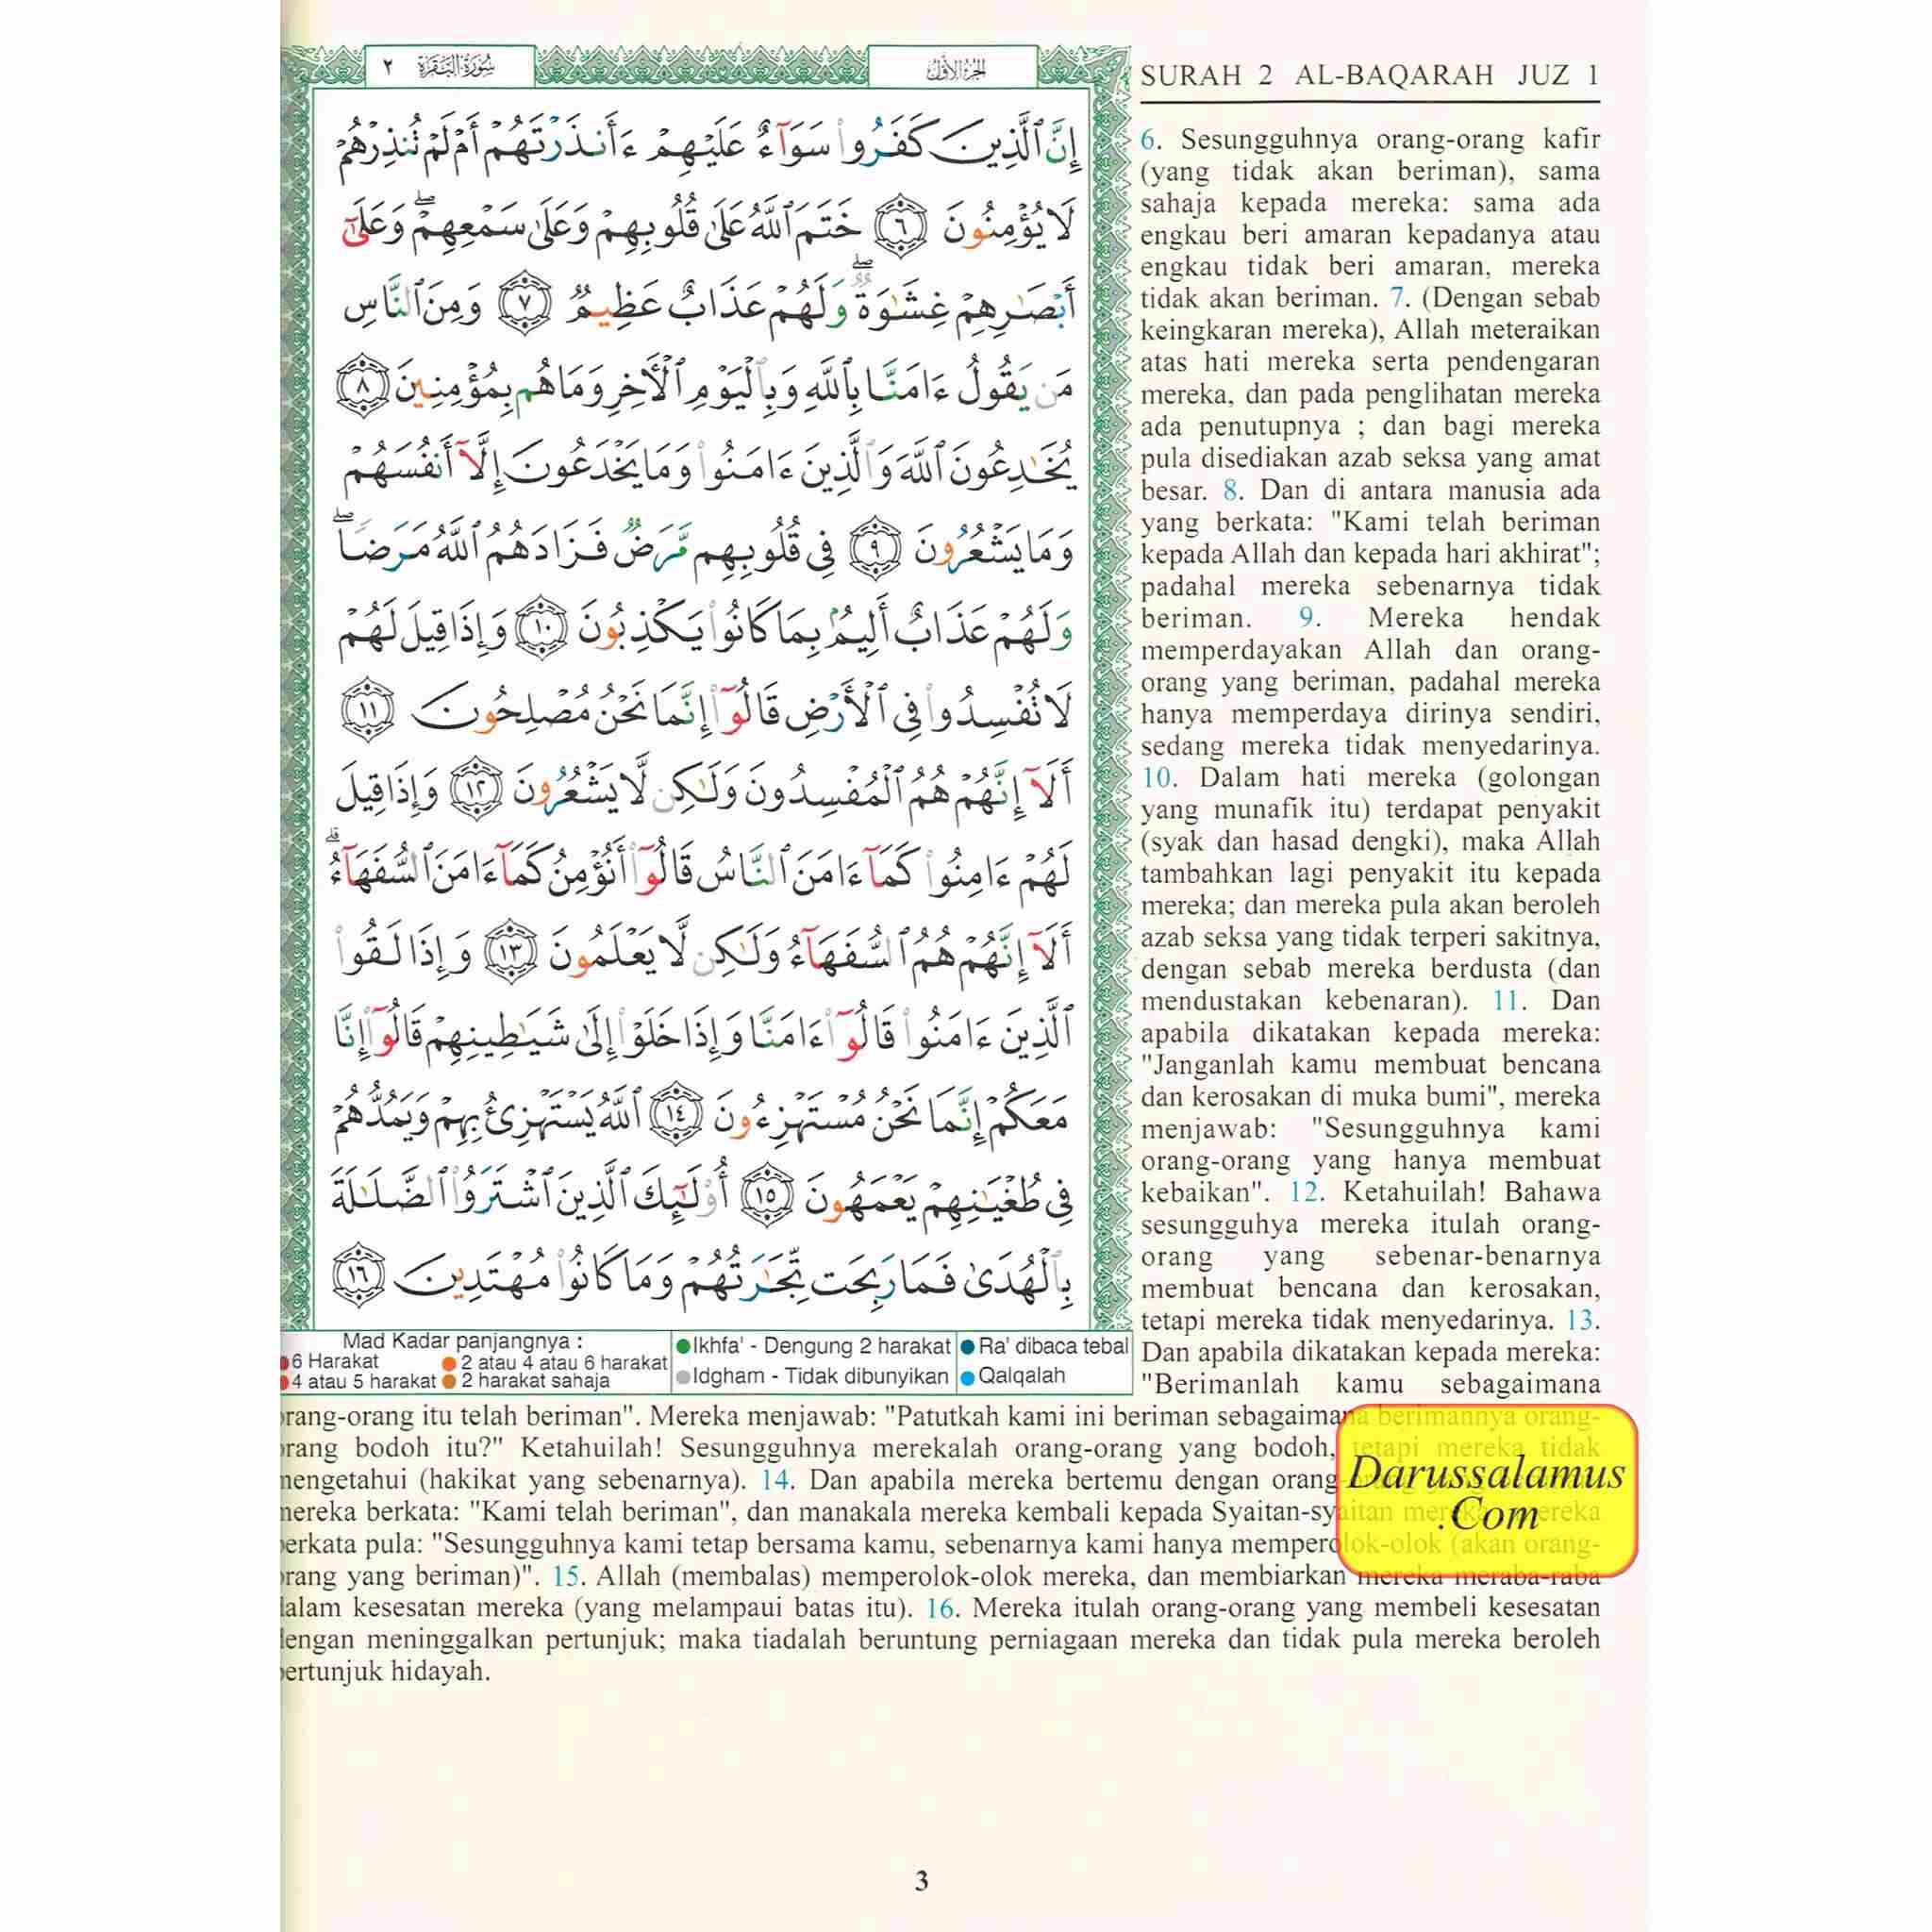 سُورَةُ البَقَرَةِ ٢
الجُزءُ الأَوَّلُ
إِنَّ ٱلَّذِينَ كَفَرُوا۟ سَوَآءٌ عَلَيْهِمْ ءَأَنذَرْتَهُمْ أَمْ لَمْ تُنذِرْهُمْ
لَا يُؤْمِنُونَ ٦ خَتَمَ ٱللَّهُ عَلَىٰ قُلُوبِهِمْ وَعَلَىٰ سَمْعِهِمْ ۖ وَعَلَىٰٓ
أَبْصَـٰرِهِمْ غِشَـٰوَةٌ ۖ وَلَهُمْ عَذَابٌ عَظِيمٌ ٧ وَمِنَ ٱلنَّاسِ
مَن يَقُولُ ءَامَنَّا بِٱللَّهِ وَبِٱلْيَوْمِ ٱلْـَٔاخِرِ وَمَا هُم بِمُؤْمِنِينَ ٨
يُخَـٰدِعُونَ ٱللَّهَ وَٱلَّذِينَ ءَامَنُوا۟ وَمَا يَخْدَعُونَ إِلَّآ أَنفُسَهُمْ
وَمَا يَشْعُرُونَ ٩ فِى قُلُوبِهِم مَّرَضٌ فَزَادَهُمُ ٱللَّهُ مَرَضًا ۖ
وَلَهُمْ عَذَابٌ أَلِيمٌۢ بِمَا كَانُوا۟ يَكْذِبُونَ ١٠ وَإِذَا قِيلَ لَهُمْ
لَا تُفْسِدُوا۟ فِى ٱلْأَرْضِ قَالُوٓا۟ إِنَّمَا نَحْنُ مُصْلِحُونَ ١١
أَلَآ إِنَّهُمْ هُمُ ٱلْمُفْسِدُونَ وَلَـٰكِن لَّا يَشْعُرُونَ ١٢ وَإِذَا قِيلَ
لَهُمْ ءَامِنُوا۟ كَمَآ ءَامَنَ ٱلنَّاسُ قَالُوٓا۟ أَنُؤْمِنُ كَمَآ ءَامَنَ ٱلسُّفَهَآءُ ۗ
أَلَآ إِنَّهُمْ هُمُ ٱلسُّفَهَآءُ وَلَـٰكِن لَّا يَعْلَمُونَ ١٣ وَإِذَا لَقُوا۟
ٱلَّذِينَ ءَامَنُوا۟ قَالُوٓا۟ ءَامَنَّا وَإِذَا خَلَوْا۟ إِلَىٰ شَيَـٰطِينِهِمْ قَالُوٓا۟ إِنَّا
مَعَكُمْ إِنَّمَا نَحْنُ مُسْتَهْزِءُونَ ١٤ ٱللَّهُ يَسْتَهْزِئُ بِهِمْ وَيَمُدُّهُمْ
فِى طُغْيَـٰنِهِمْ يَعْمَهُونَ ١٥ أُو۟لَـٰٓئِكَ ٱلَّذِينَ ٱشْتَرَوُا۟ ٱلضَّلَـٰلَةَ
بِٱلْهُدَىٰ فَمَا رَبِحَت تِّجَـٰرَتُهُمْ وَمَا كَانُوا۟ مُهْتَدِينَ ١٦
Mad Kadar panjangnya :
6 Harakat
2 atau 4 atau 6 harakat
4 atau 5 harakat
2 harakat sahaja
Ikhfa' - Dengung 2 harakat
Idgham - Tidak dibunyikan
Ra' dibaca tebal
Qalqalah
SURAH 2 AL-BAQARAH JUZ 1
6. Sesungguhnya orang-orang kafir
(yang tidak akan beriman), sama
sahaja kepada mereka: sama ada
engkau beri amaran kepadanya atau
engkau tidak beri amaran, mereka
tidak akan beriman. 7. (Dengan sebab
keingkaran mereka), Allah meteraikan
atas hati mereka serta pendengaran
mereka, dan pada penglihatan mereka
ada penutupnya ; dan bagi mereka
pula disediakan azab seksa yang amat
besar. 8. Dan di antara manusia ada
yang berkata: "Kami telah beriman
kepada Allah dan kepada hari akhirat";
padahal mereka sebenarnya tidak
beriman. 9. Mereka hendak
memperdayakan Allah dan orang-
orang yang beriman, padahal mereka
hanya memperdaya dirinya sendiri,
sedang mereka tidak menyedarinya.
10. Dalam hati mereka (golongan
yang munafik itu) terdapat penyakit
(syak dan hasad dengki), maka Allah
tambahkan lagi penyakit itu kepada
mereka; dan mereka pula akan beroleh
azab seksa yang tidak terperi sakitnya,
dengan sebab mereka berdusta (dan
mendustakan kebenaran). 11. Dan
apabila dikatakan kepada mereka:
"Janganlah kamu membuat bencana
dan kerosakan di muka bumi", mereka
menjawab: "Sesungguhnya kami
orang-orang yang hanya membuat
kebaikan". 12. Ketahuilah! Bahawa
sesungguhya mereka itulah orang-
orang yang sebenar-benarnya
membuat bencana dan kerosakan,
tetapi mereka tidak menyedarinya. 13.
Dan apabila dikatakan kepada mereka:
"Berimanlah kamu sebagaimana
rang-orang itu telah beriman". Mereka menjawab: "Patutkah kami ini beriman sebagaimana berimannya orang-
rang bodoh itu?" Ketahuilah! Sesungguhnya merekalah orang-orang yang bodoh, tetapi mereka tidak
mengetahui (hakikat yang sebenarnya). 14. Dan apabila mereka bertemu dengan orang-
mereka berkata: "Kami telah beriman", dan manakala mereka kembali kepada Syaitan-syaitan mereka, mereka
berkata pula: "Sesungguhnya kami tetap bersama kamu, sebenarnya kami hanya memperolok-olok (akan orang-
rang yang beriman)". 15. Allah (membalas) memperolok-olok mereka, dan membiarkan mereka meraba-raba
dalam kesesatan mereka (yang melampaui batas itu). 16. Mereka itulah orang-orang yang membeli kesesatan
dengan meninggalkan pertunjuk; maka tiadalah beruntung perniagaan mereka dan tidak pula mereka beroleh
pertunjuk hidayah.
Darussalamus
.Com
3